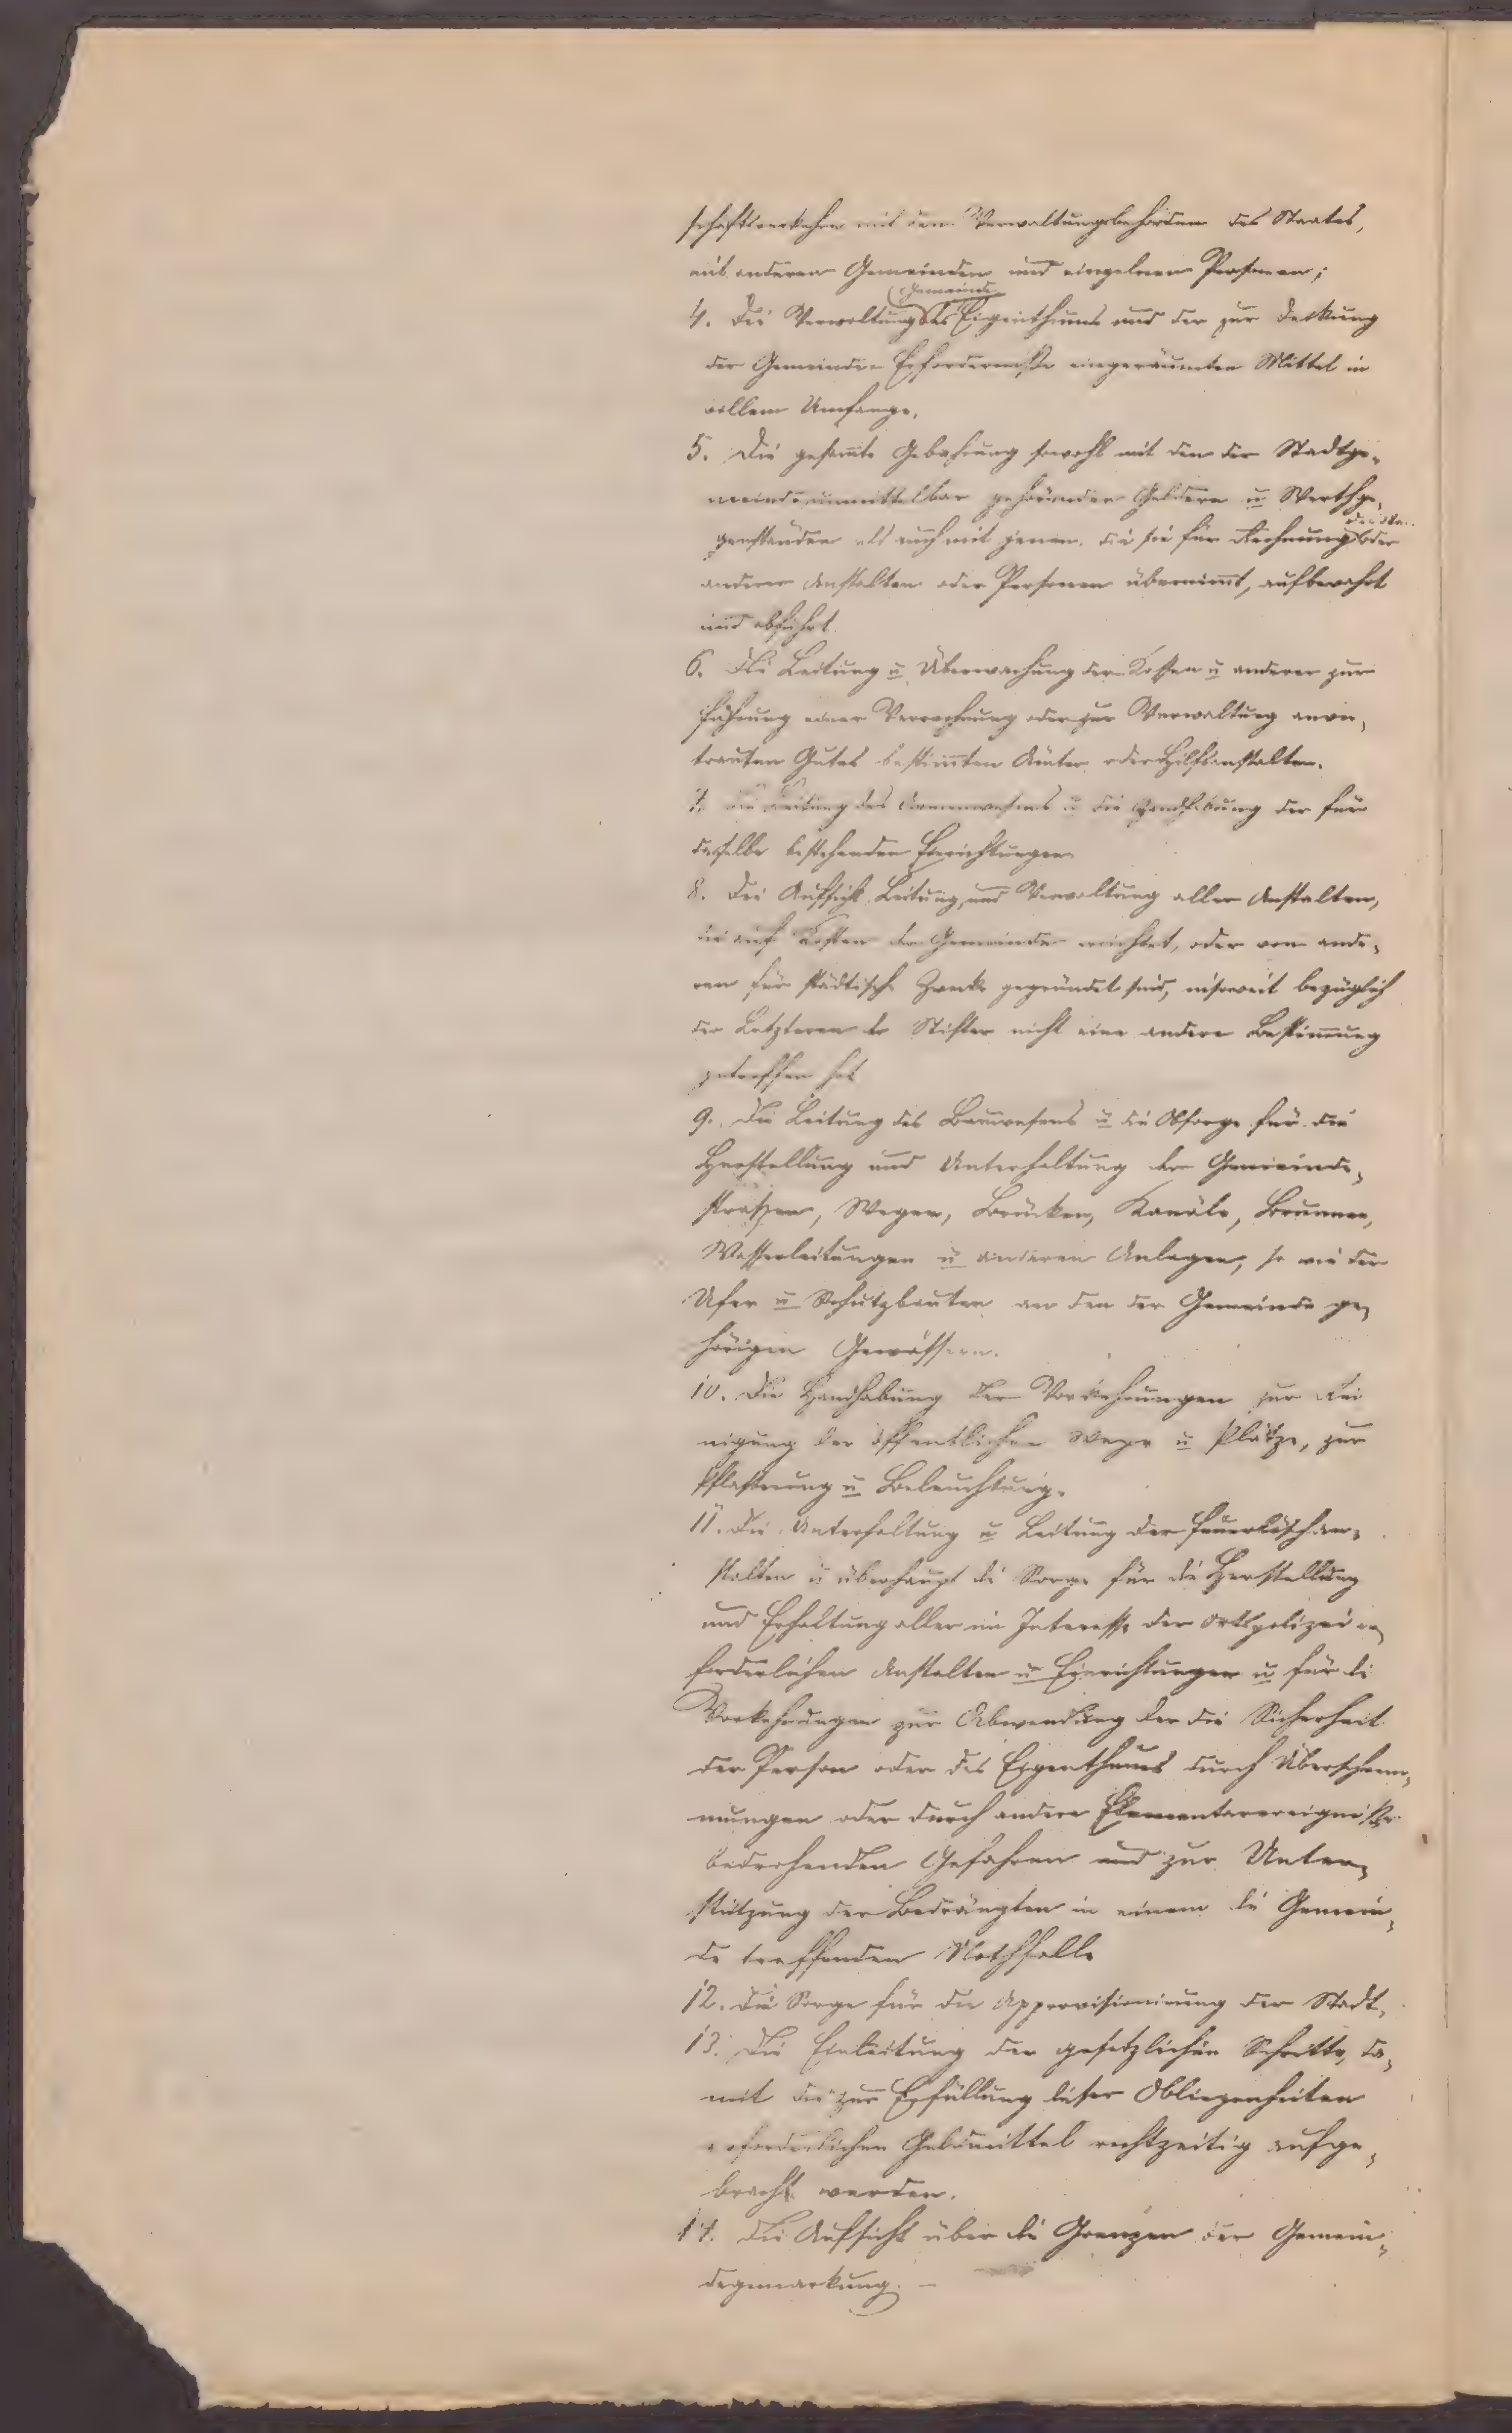 schaftsverkehre mit den Verwaltungsbehörden des Staates,
mit anderen Gemeinden und einzelnen Personen;
Gemeinde
4. Die Verwaltung des Eigenthums und der zur Deckung
der Gemeinde-Erforderniße eingeräumten Mittel in
vollem Umfange.
5. Die gesam̅te Gebahrung sowohl mit den der Stadtge-
meinde unmittelbar gehörenden Geldern u Werthge-
genständen als auch mit jenen, die sie für Rechnung oder
anderer Anstalten oder Personen übernim̅t, aufbewahrt
und abführt.
6. Die Leitung u Überwachung der Kassen u anderer zur
Führung einer Verrechnung oder zur Verwaltung anver-
trauten Gutes bestim̅ten Ämter oder Hilfsanstalten.
7. Die Leitung des Armenwesens u die Handhabung der für
dasselbe bestehenden Einrichtungen
8. Die Aufsicht Leitung, und Verwaltung aller Anstalten,
die auf Kosten der Gemeinde errichtet, oder von ande-
ren für städtische Zwecke gegründet sind, insoweit bezüglich
der Letzteren der Stifter nicht eine andere Bestim̅ung
getroffen hat
9. Die Leitung des Bauwesens u die Obsorge für die
Herstellung und Unterhaltung der Gemeinde-
straßen, Wege, Brücken, Kanäle, Brunnen,
Wasserleitungen u anderen Anlagen, so wie der
Ufer u Schutzbauten an den der Gemeinde ge-
hörigen Gewässern.
10. Die Handhabung der Vorkehrungen zur Rei
nigung der öffentlichen Wege u Plätze, zur
Pflasterung u Beleuchtung.
11. Die Unterhaltung u Leitung der Feuerlöschan-
stalten u überhaupt die Sorge für die Herstellung
und Erhaltung aller im Interesse der Ortspolizei er-
forderlichen Anstalten u Einrichtungen u für die
Vorkehrungen zur Abwendung der die Sicherheit
der Person oder des Eigenthums durch Überschwem-
mungen oder durch andere Elementarereigniße
bedrohenden Gefahren und zur Unter-
stützung der Bedrängten in einem die Gemein-
de treffenden Nothfalle
12. Die Sorge für die Approvisionirung der Stadt.
13. Die Einleitung der gesetzlichen Schritte, da-
mit die zur Erfüllung dieser Obliegenheiten
erforderlichen Geldmittel rechtzeitig aufge-
bracht werden.
14. Die Aufsicht über die Grenzen der Gemein-
degemarkung. –